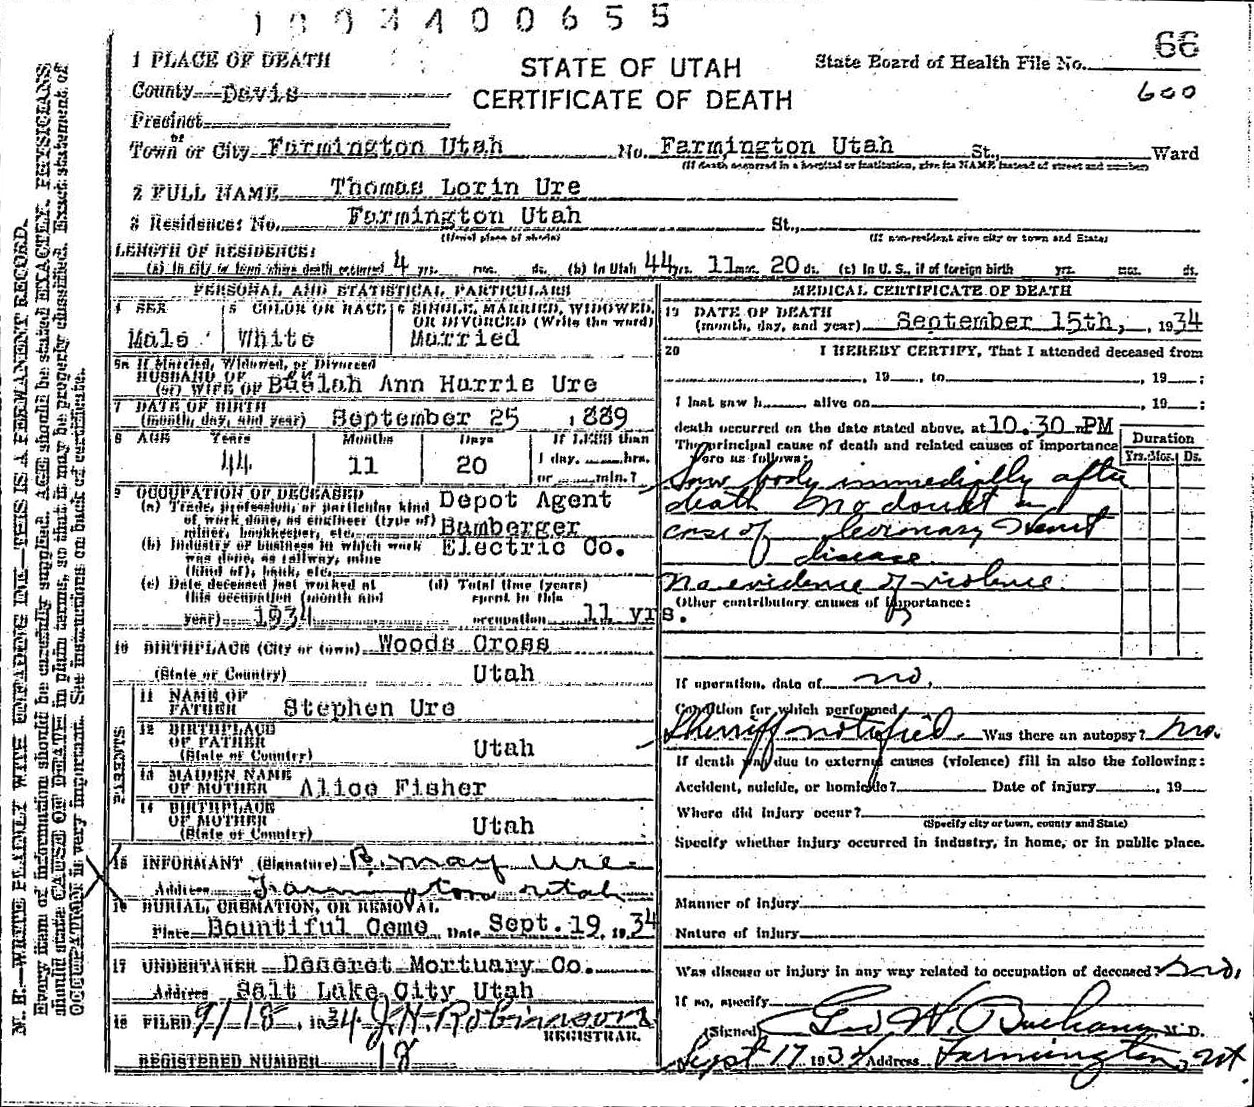 1 0 0 3 4 0 0 6 5 5
66
1 PLACE OF DEATH
STATE OF UTAH
State Board of Health File No.
County Davis
CERTIFICATE OF DEATH
600
Precinct
Town or City Farmington Utah No. Farmington Utah St., Ward
(If death occurred in a hospital or institution, give its NAME instead of street and number)
2 FULL NAME Thomas Lorin Ure
3 Residence: No. Farmington Utah St.,
(Usual place of abode) (If non-resident give city or town and State)
LENGTH OF RESIDENCE:
(a) In city or town where death occurred 4 yrs. mos. ds. (b) In Utah 44 yrs. 11 mos. 20 ds. (c) In U. S., if of foreign birth yrs. mos. ds.
PERSONAL AND STATISTICAL PARTICULARS
4 SEX 5 COLOR OR RACE 6 SINGLE, MARRIED, WIDOWED, OR DIVORCED (Write the word)
Male White Married
5a If Married, Widowed, or Divorced
HUSBAND OF
(or) WIFE OF Ann Harris Ure
7 DATE OF BIRTH
(month, day, and year) September 25, 1889
8 AGE Years Months Days If LESS than
44 11 20 1 day, hrs.
or min.?
9 OCCUPATION OF DECEASED
(a) Trade, profession, or particular kind of work done, as engineer (type of) miner, bookkeeper, etc. Depot Agent
Bamberger
(b) Industry or business in which work was done, as railway, mine (kind of), bank, etc. Electric Co.
(c) Date deceased last worked at this occupation (month and year) 1934
(d) Total time (years) spent in this occupation 11 yrs.
10 BIRTHPLACE (City or town) Woods Cross
(State or Country) Utah
PARENTS
11 NAME OF FATHER Stephen Ure
12 BIRTHPLACE OF FATHER
(State or Country) Utah
13 MAIDEN NAME OF MOTHER Alice Fisher
14 BIRTHPLACE OF MOTHER
(State or Country) Utah
15 INFORMANT (Signature) B. May Ure
Address Farmington Utah
16 BURIAL, CREMATION, OR REMOVAL
Place Bountiful Ceme Date Sept. 19, 1934
17 UNDERTAKER Deseret Mortuary Co.
Address Salt Lake City Utah
18 FILED 9/18, 1934 J. H. Robinson
REGISTRAR.
REGISTERED NUMBER 18
MEDICAL CERTIFICATE OF DEATH
19 DATE OF DEATH
(month, day, and year) September 15th, 1934
20 I HEREBY CERTIFY, That I attended deceased from
, 19 , to , 19 ;
I last saw h alive on , 19 ;
death occurred on the date stated above, at 10.30 PM
The principal cause of death and related causes of importance were as follows:
Duration
Yrs. Mos. Ds.
Saw body immediatly after
death No doubt a
case of Coronary Heart
disease
No evidence of violence
Other contributary causes of importance:
If operation, date of no.
Condition for which performed
Sherriff notified. Was there an autopsy? no.
If death was due to external causes (violence) fill in also the following:
Accident, suicide, or homicide? Date of injury , 19
Where did injury occur?
(Specify city or town, county and State)
Specify whether injury occurred in industry, in home, or in public place.
Manner of injury
Nature of injury
Was disease or injury in any way related to occupation of deceased? no.
If so, specify
(Signed) Geo W. Buchanan M. D.
Sept 17 1934 Address Farmington, Ut.
N. B.—WRITE PLAINLY WITH UNFADING INK—THIS IS A PERMANENT RECORD.
Every item of information should be carefully supplied. AGE should be stated EXACTLY. PHYSICIANS
should state CAUSE OF DEATH in plain terms, so that it may be properly classified. Exact statement of
OCCUPATION is very important. See instructions on back of certificate.